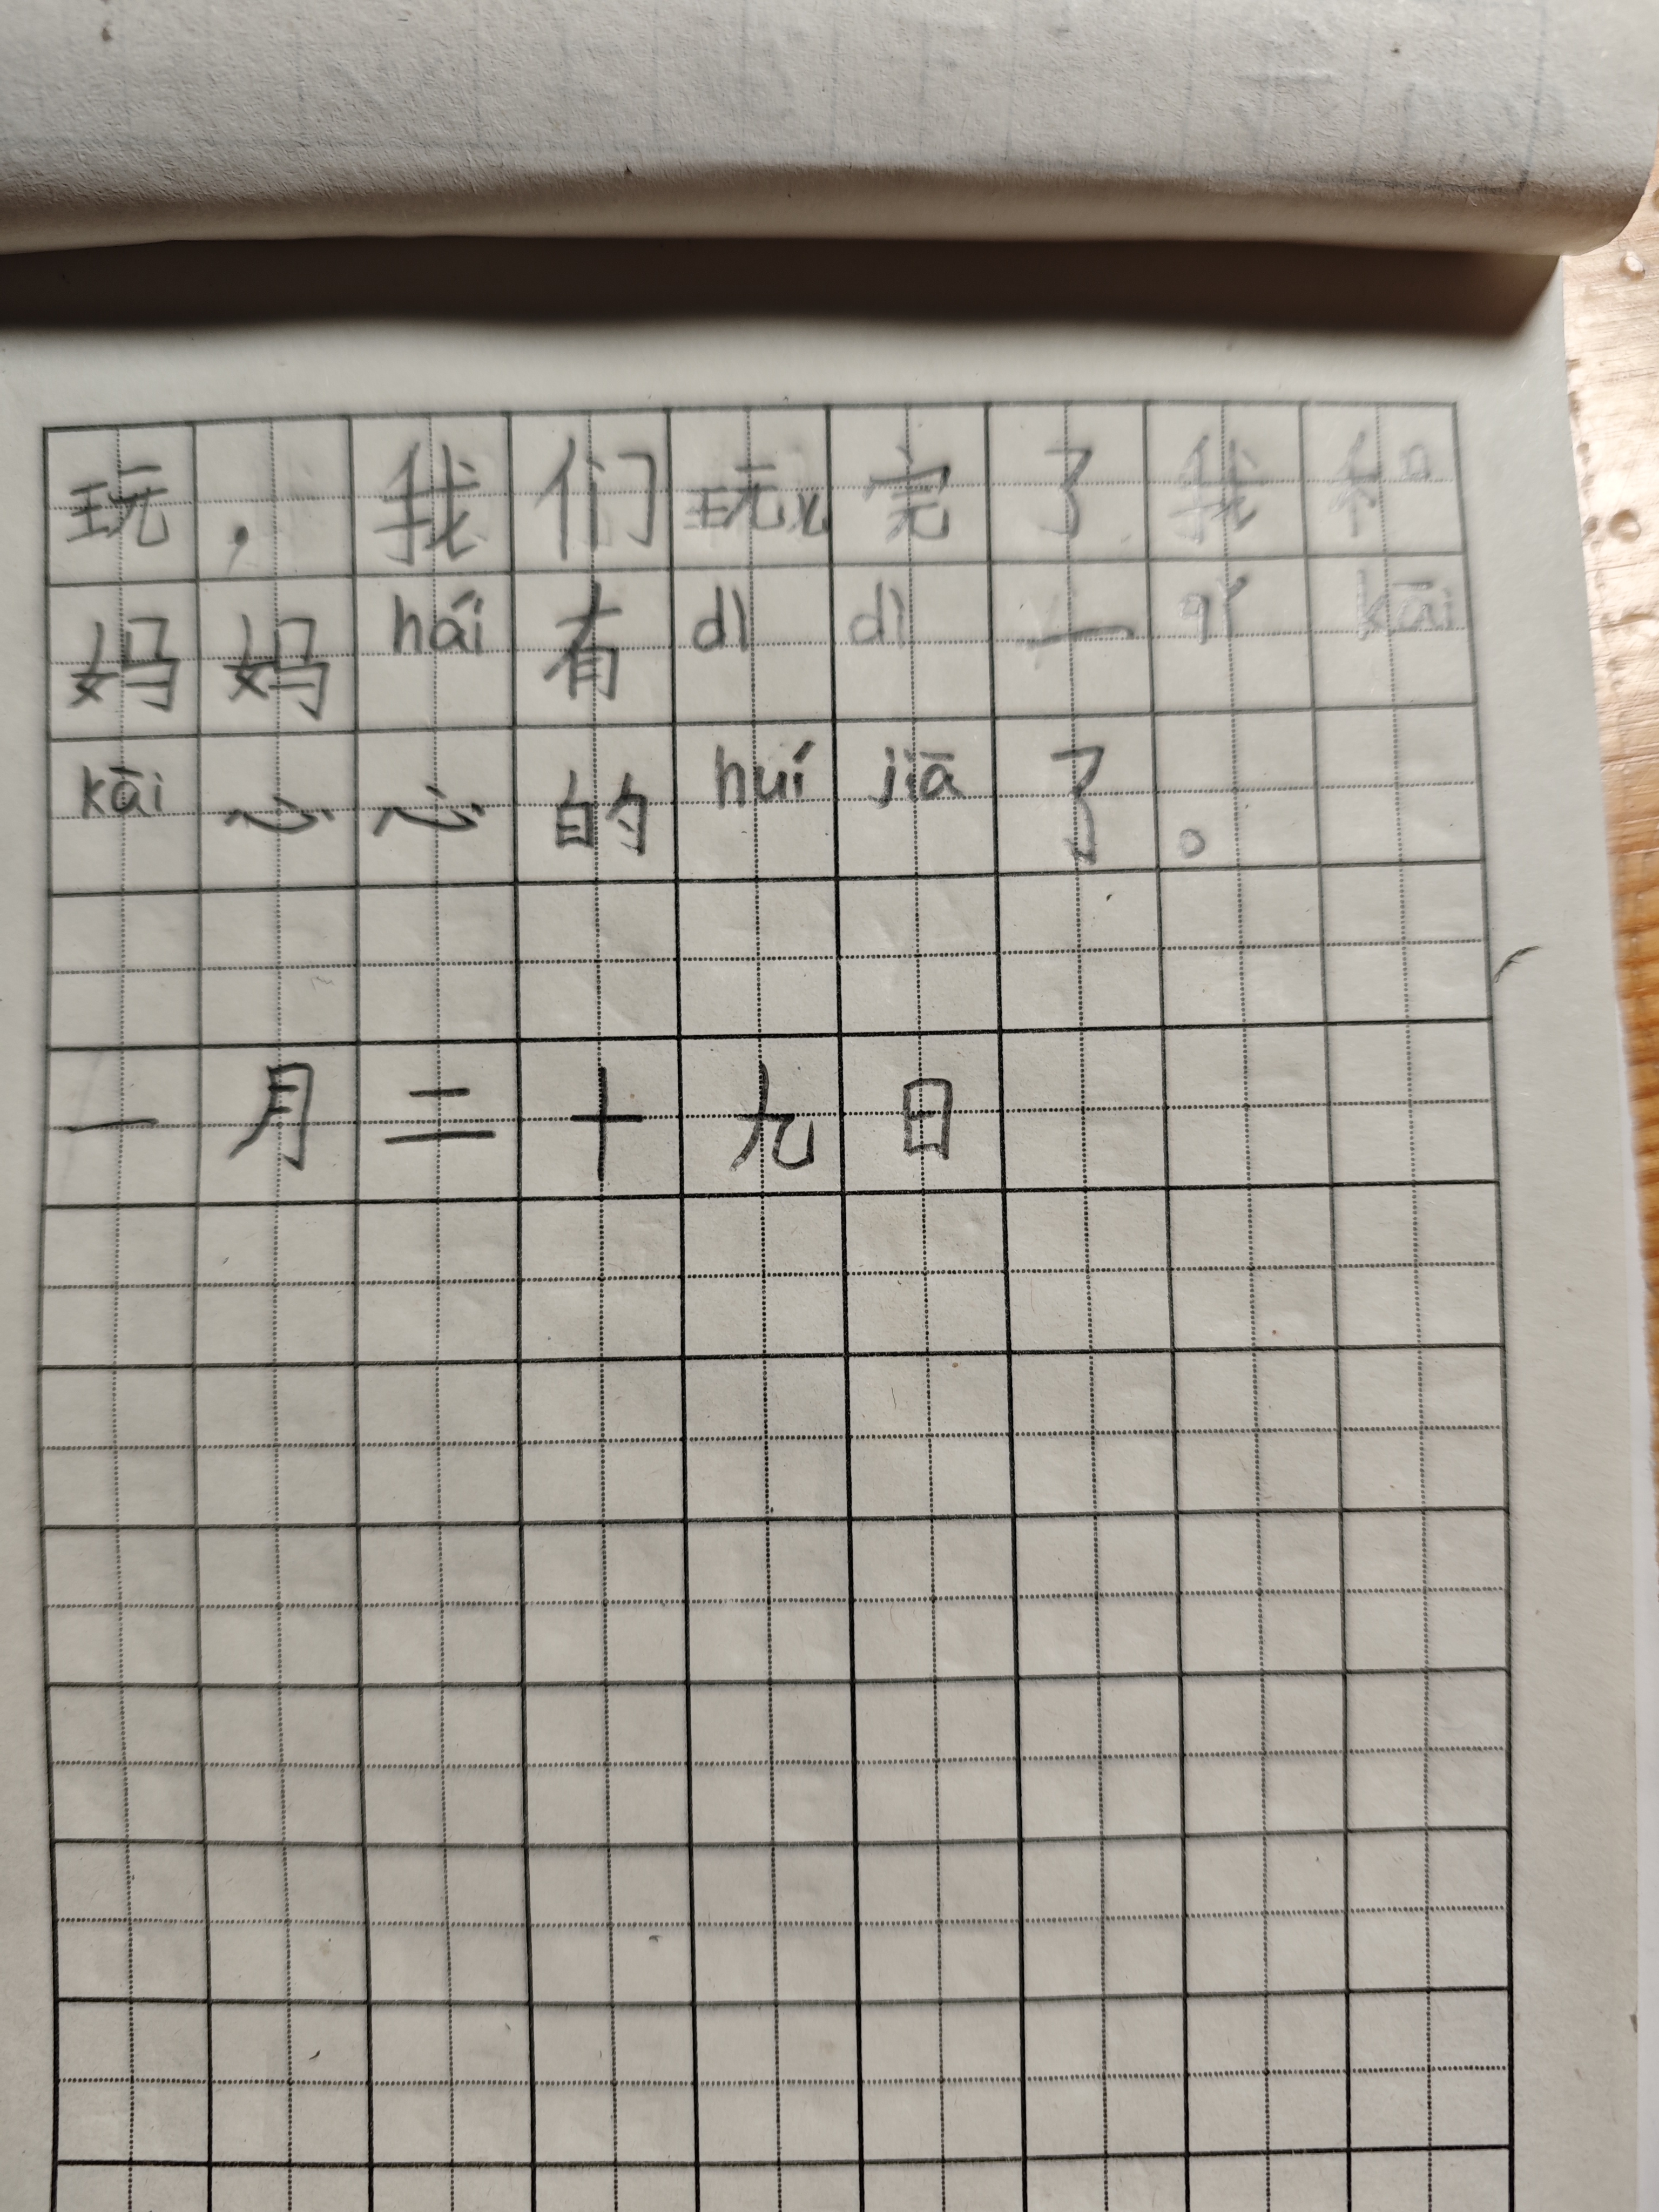 玩，我们玩完了我和
妈妈hái有dì dì一 kāi
kāi心心的huí jiā了。
一月二十九日